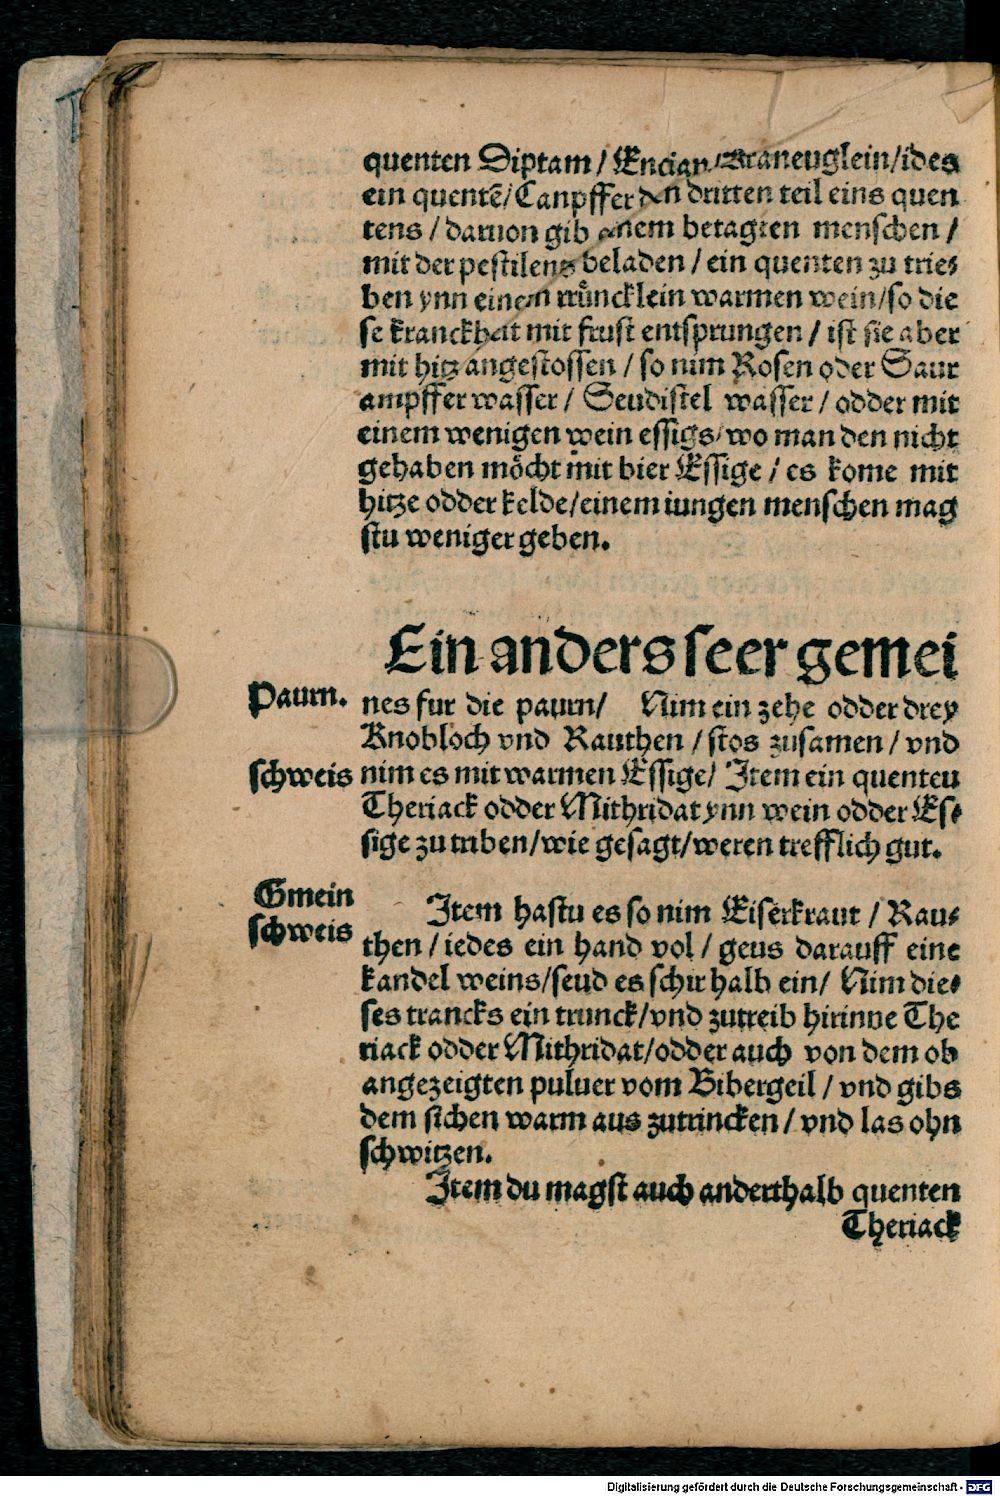 quenten Diptam / Encian / Kraneuglein / ides
ein quentē / Canpffer den dritten teil eins quen
tens / daruon gib einem betagten menschen /
mit der pestilentz beladen / ein quenten zu trie⸗
ben ynn einem trůncklein warmen wein / so die
se kranckheit mit frust entsprungen / ist sie aber
mit hitz angestossen / so nim Rosen oder Saur
ampffer wasser / Seudistel wasser / odder mit
einem wenigen wein essigs / wo man den nicht
gehaben möcht mit bier Essige / es kome mit
hitze odder kelde / einem iungen menschen mag
stu weniger geben.
Ein anders seer gemei
Paurn. nes fur die paurn / Nim ein zehe odder drey
Knobloch vnd Rauthen / stos zusamen / vnd
schweis nim es mit warmen Essige / Item ein quenteu
Theriack odder Mithridat ynn wein odder Es⸗
sige zu triben / wie gesagt / weren trefflich gut.
Gmein
schweis
Item hastu es so nim Eiserkraut / Rau⸗
then / iedes ein hand vol / geus darauff eine
kandel weins / seud es schir halb ein / Nim die⸗
ses trancks ein trunck / vnd zutreib hirinne The
riack odder Mithridat / odder auch von dem ob
angezeigten puluer vom Bibergeil / vnd gibs
dem sichen warm aus zutrincken / vnd las ohn
schwitzen.
Item du magst auch anderthalb quenten
Theriack
Digitalisierung gefördert durch die Deutsche Forschungsgemeinschaft - DFG